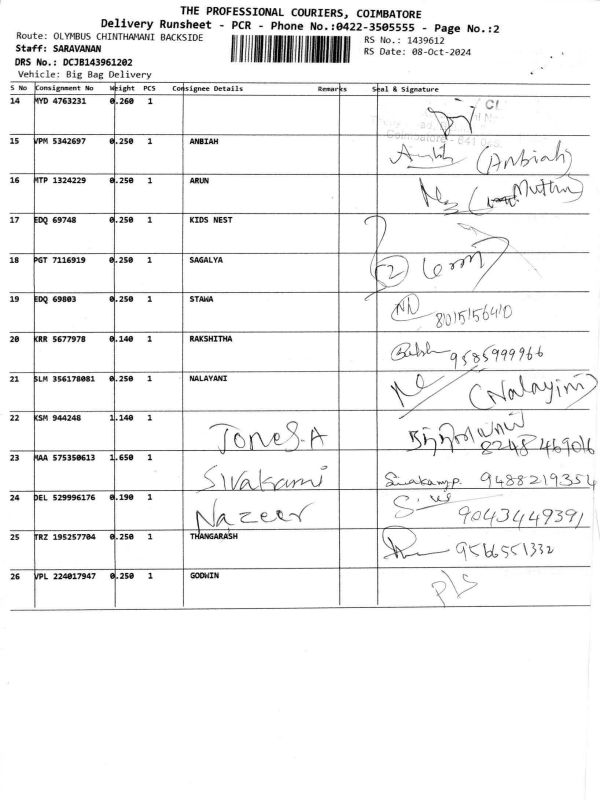 THE PROFESSIONAL COURIERS, COIMBATORE
Delivery Runsheet - PCR - Phone No.:0422-3505555 - Page No.:2
Route: OLYMBUS CHINTHAMANI BACKSIDE RS No.: 1439612
Staff: SARAVANAN RS Date: 08-Oct-2024
DRS No.: DCJB143961202
Vehicle: Big Bag Delivery
S No Consignment No Weight PCS Consignee Details Remarks Seal & Signature
14 MYD 4763231 0.260 1
Coimbatore - 641
15 VPM 5342697 0.250 1 ANBIAH (Anbiah)
16 MTP 1324229 0.250 1 ARUN
17 EDQ 69748 0.250 1 KIDS NEST
18 PGT 7116919 0.250 1 SAGALYA 2
19 EDQ 69803 0.250 1 STAWA 8015156410
20 KRR 5677978 0.140 1 RAKSHITHA 9585999966
21 SLM 356178081 0.250 1 NALAYANI (Nalayini)
22 KSM 944248 1.140 1 Jones.A 8248469016
23 MAA 575350613 1.650 1 Sivakami Sivakami.p. 9488219354
24 DEL 529996176 0.190 1 Nazeer 9043449391
25 TRZ 195257704 0.250 1 THANGARASH 9566551332
26 VPL 224017947 0.250 1 GODWIN P/S